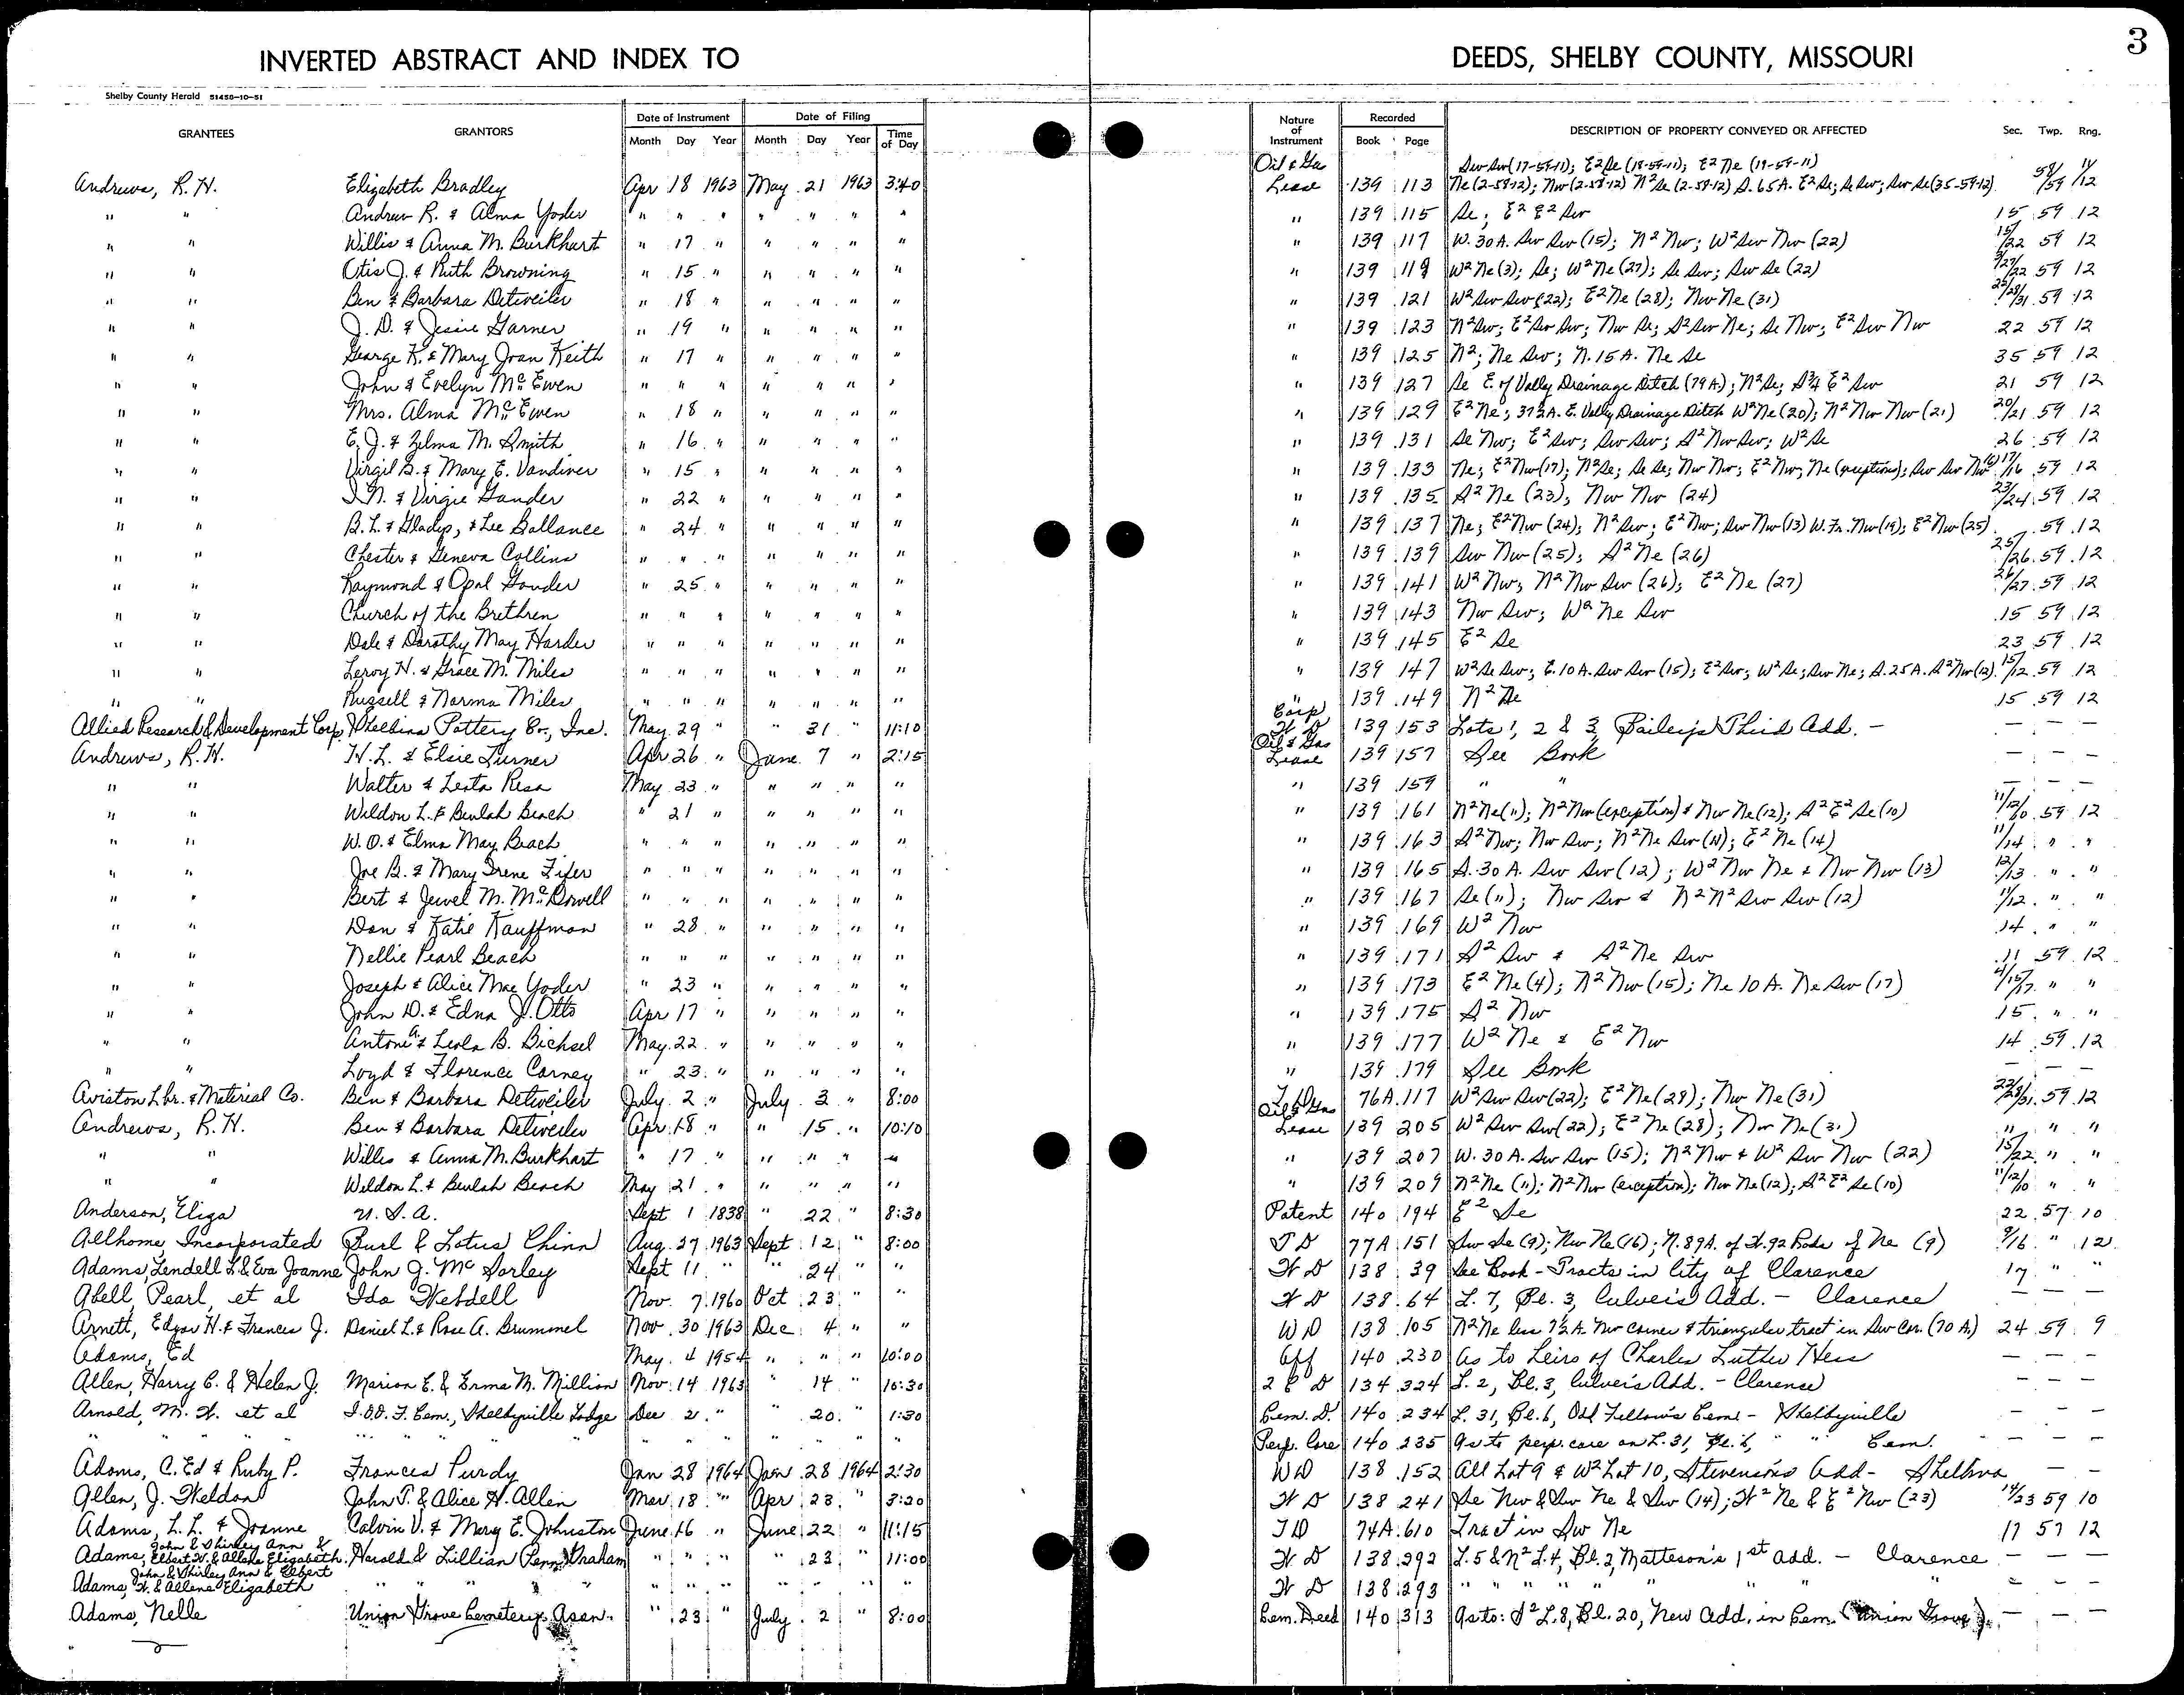 3
INVERTED ABSTRACT AND INDEX TO DEEDS, SHELBY COUNTY, MISSOURI
Shelby County Herald 51458-10-51
GRANTEES GRANTORS Date of Instrument Date of Filing Nature of Instrument Recorded DESCRIPTION OF PROPERTY CONVEYED OR AFFECTED Sec. Twp. Rng.
Month Day Year Month Day Year Time of Day Book Page
Oil & Gas Sw Sw (17-59-11); E² Se (18-59-11); E² Ne (19-59-11)
Andrews, R. H. Elizabeth Bradley Apr 18 1963 May 21 1963 3:40 Lease 139 113 Ne (2-58-12); Nw (2-58-12) N² Se (2-58-12) S. 65A. E² Se; Se Sw; Sw Se (35-59-12) 58/59 11/12
" " Andrew R. & Alma Yoder " " " " " " " " 139 115 Se; E² E² Sw 15 59 12
" " Willis & Anna M. Burkhart " 17 " " " " " " 139 117 W. 30A. Sw Sw (15); N² Nw; W² Sw Nw (22) 15/22 59 12
" " Otis J. & Ruth Browning " 15 " " " " " " 139 119 W² Ne (3); Se; W² Ne (27); Se Sw; Sw Se (22) 3/27/22 59 12
" " Ben & Barbara Detweiler " 18 " " " " " " 139 121 W² Sw Sw (22); E² Ne (28); Nw Ne (31) 22/28/31 59 12
" " J. D. & Jessie Garner " 19 " " " " " " 139 123 N² Sw; E² Sw Sw; Nw Se; S² Sw Ne; Se Nw; E² Sw Nw 22 59 12
" " George K. & Mary Joan Keith " 17 " " " " " " 139 125 N²; Ne Sw; N. 15A. Ne Se 35 59 12
" " John & Evelyn McEwen " " " " " " " " 139 127 Se E. of Vally Drainage Ditch (79A); N² Se; S¾ E² Sw 21 59 12
" " Mrs. Alma McEwen " 18 " " " " " " 139 129 E² Ne; 37½A. E. Vally Drainage Ditch W² Ne (20); N² Nw Nw (21) 20/21 59 12
" " E. J. & Zelma M. Smith " 16 " " " " " " 139 131 Se Nw; E² Sw; Sw Sw; S² Nw Sw; W² Se 26 59 12
" " Virgil B. & Mary E. Vandiver " 15 " " " " " " 139 133 Ne; E² Nw (17); N² Se; Se Se; Nw Nw; E² Nw; Ne (exceptions); Sw Sw Nw (16) 17/16 59 12
" " I. N. & Virgie Gander " 22 " " " " " " 139 135 S² Ne (23); Nw Nw (24) 23/24 59 12
" " B. L. & Gladys, & Lee Ballance " 24 " " " " " " 139 137 Ne; E² Nw (24); N² Sw; E² Nw; Sw Nw (13) W. Fr. Nw (19); E² Nw (25) 59 12
" " Chester & Geneva Collins " " " " " " " " 139 139 Sw Nw (25); S² Ne (26) 25/26 59 12
" " Raymond & Opal Gander " 25 " " " " " " 139 141 W² Nw; N² Nw Sw (26); E² Ne (27) 26/27 59 12
" " Church of the Brethren " " " " " " " " 139 143 Nw Sw; W² Ne Sw 15 59 12
" " Dale & Dorothy May Harder " " " " " " " " 139 145 E² Se 23 59 12
" " Leroy H. & Grace M. Miles " " " " " " " " 139 147 W² Se Sw; E. 10A. Sw Sw (15); E² Sw; W² Se; Sw Ne; S. 25A. S² Nw (12) 15/12 59 12
" " Russell & Norma Miles " " " " " " " " 139 149 N² Se 15 59 12
Allied Research & Development Corp. Shelbina Pottery Co., Inc. May 29 " " 31 " 11:10 Corp W D 139 153 Lots 1, 2 & 3, Bailey's Third Add. - — — —
Andrews, R. H. H. L. & Elsie Turner Apr 26 " June 7 " 2:15 Oil & Gas Lease 139 157 See Book — — —
" " Walter & Leota Resa May 23 " " " " " " 139 159 " " — — —
" " Weldon L. & Beulah Beach " 21 " " " " " " 139 161 N² Ne (11); N² Nw (exception) & Nw Ne (12); S² E² Se (10) 11/12/10 59 12
" " W. O. & Elma May Beach " " " " " " " " 139 163 S² Nw; Nw Sw; N² Ne Sw (11); E² Ne (14) 11/14 " "
" " Joe B. & Mary Irene Fifer " " " " " " " " 139 165 S. 30 A. Sw Sw (12); W² Nw Ne & Nw Nw (13) 12/13 " "
" " Bert & Jewel M. McDowell " " " " " " " " 139 167 Se (11); Nw Sw & N² N² Sw Sw (12) 11/12 " "
" " Dan & Katie Kauffman " 28 " " " " " " 139 169 W² Nw 14 " "
" " Nellie Pearl Beach " " " " " " " " 139 171 S² Sw & S² Ne Sw 11 59 12
" " Joseph & Alice Mae Yoder " 23 " " " " " " 139 173 E² Ne (4); N² Nw (15); Ne 10 A. Ne Sw (17) 4/15/17 " "
" " John D. & Edna J. Otto Apr 17 " " " " " " 139 175 S² Nw 15 " "
" " Antone A. & Leola B. Bichsel May 22 " " " " " " 139 177 W² Ne & E² Nw 14 59 12
" " Loyd & Florence Carney " 23 " " " " " " 139 179 See Book — — —
Aviston Lbr. & Material Co. Ben & Barbara Detweiler July 2 " July 3 " 8:00 T D 76A 117 W² Sw Sw (22); E² Ne (28); Nw Ne (31) 22/28/31 59 12
Andrews, R. H. Ben & Barbara Detweiler Apr 18 " " 15 " 10:10 Oil & Gas Lease 139 205 W² Sw Sw (22); E² Ne (28); Nw Ne (31) " " "
" " Willis & Anna M. Burkhart " 17 " " " " " " 139 207 W. 30 A. Sw Sw (15); N² Nw & W² Sw Nw (22) 15/22 " "
" " Weldon L. & Beulah Beach May 21 " " " " " " 139 209 N² Ne (11); N² Nw (exception); Nw Ne (12); S² E² Se (10) 11/12/10 " "
Anderson, Eliza U. S. A. Sept 1 1838 " 22 " 8:30 Patent 140 194 E² Se 22 57 10
Allhome, Incorporated Burl & Lotus Chinn Aug. 27 1963 Sept 12 " 8:00 T D 77A 151 Sw Se (9); Nw Ne (16); N. 89A. of W. 92 Rods of Ne (9) 9/16 " 12
Adams, Lendell L. & Eva Joanne John J. McSorley Sept 11 " " 24 " " W D 138 39 See Book - Tracts in City of Clarence 17 " "
Abell, Pearl, et al Ida Webdell Nov. 7 1960 Oct 23 " " W D 138 64 L. 7, Bl. 3, Culver's Add. - Clarence — — —
Arnett, Edgar H. & Frances J. Daniel L. & Rose A. Brummel Nov. 30 1963 Dec 4 " " W D 138 105 N² Ne less 7½A. Nw corner & triangular tract in Sw Cor. (70 A.) 24 59 9
Adams, Ed May 4 1954 " " " 10:00 Aff 140 230 As to Heirs of Charles Luther Hess — — —
Allen, Harry C. & Helen J. Marion E. & Erma M. Million Nov. 14 1963 " 14 " 10:30 2 C D 134 324 L. 2, Bl. 3, Culver's Add. - Clarence — — —
Arnold, M. W. et al I.O.O.F. Cem., Shelbyville Lodge Dec 2 " " 20 " 1:30 Cem. D. 140 234 L. 31, Bl. 6, Odd Fellow's Cem - Shelbyville — — —
" " " " " " " " " " " " " Perp. Care 140 235 As to perp. care on L. 31, Bl. 6, " " Cem. — — —
Adams, C. Ed & Ruby P. Frances Purdy Jan 28 1964 Jan 28 1964 2:30 W D 138 152 All Lot 9 & W² Lot 10, Stevenson's Add - Shelbina — —
Allen, J. Weldon John T. & Alice H. Allen Mar 18 " Apr 23 " 3:20 W D 138 241 Se Nw & Sw Ne & Sw (14); W² Ne & E² Nw (23) 14/23 59 10
Adams, L. L. & Joanne Calvin V. & Mary E. Johnston June 16 " June 22 " 11:15 T D 74A 610 Tract in Sw Ne 17 57 12
Adams, John & Shirley Ann & Elbert W. & Allena Elizabeth Harold & Lillian Penn Graham " " " " 23 " 11:00 W D 138 292 L. 5 & N² L. 4, Bl. 2, Matteson's 1st Add. - Clarence — — —
Adams, John & Shirley Ann & Elbert W. & Allene Elizabeth " " " " " " " " " " W D 138 293 " " " " " " " " — — —
Adams, Nelle Union Grove Cemetery Assn. " 23 " July 2 " 8:00 Cem. Deed 140 313 As to: S² L. 8, Bl. 20, New Add. in Cem. (Union Grove). — — —